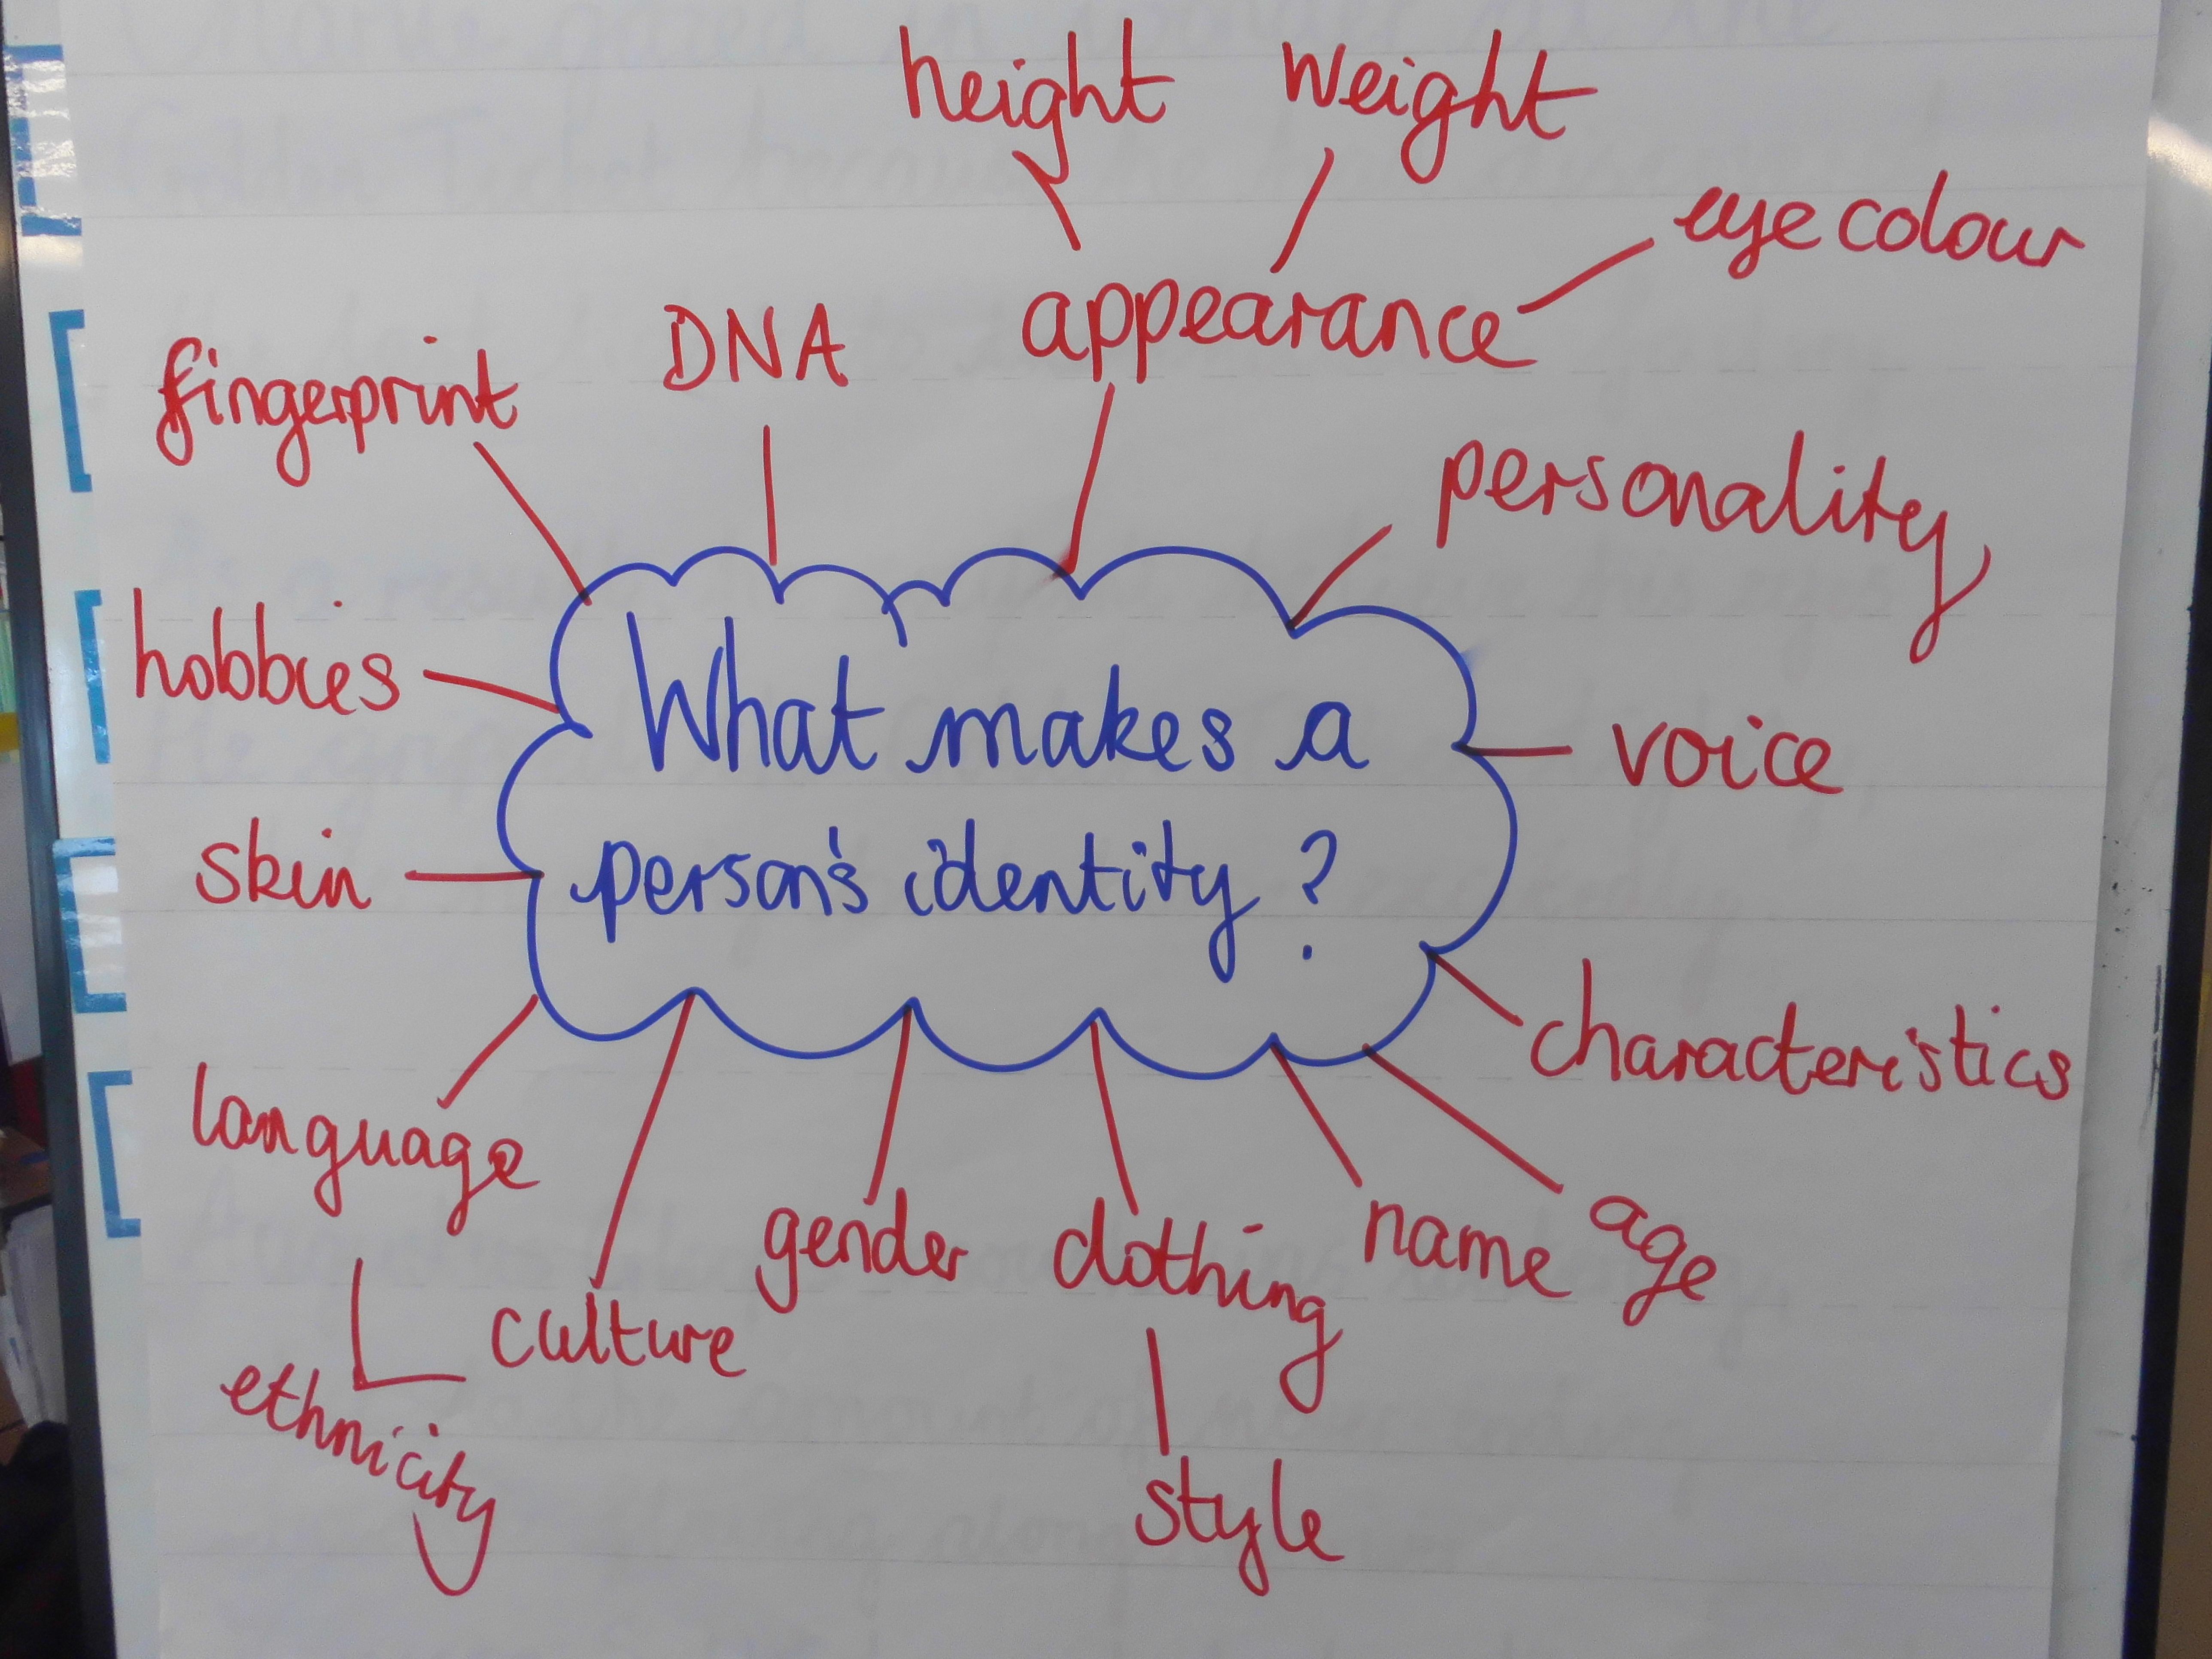 height weight
eye colour
appearance
DNA
fingerprint
personality
hobbies
What makes a
person's identity?
voice
skin
characteristics
language
gender clothing name age
culture
ethnicity
style